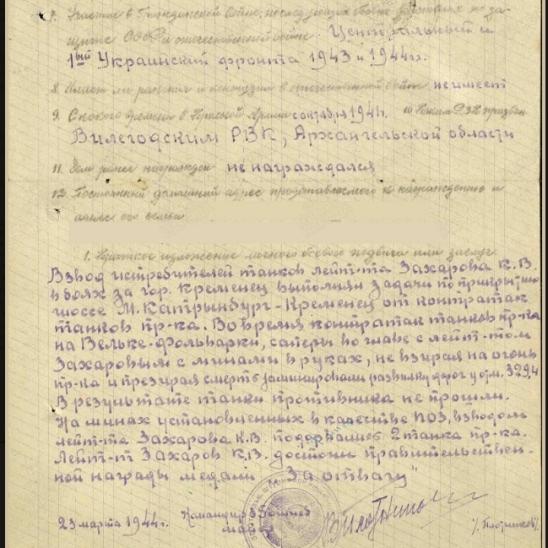 7. Участие в Гражданской войне, последующих боевых действиях по за-
щите СССР и отечественной войне. Центральный и
1ый Украинский фронта 1943 и 1944 г.
8. Имеет ли ранения и контузии в отечественной войне не имеет
9. С какого времени в Красной Армии с октября 1941 г. 10 Каким РВК призван
Вилегодским РВК, Архангельской области
11. Чем ранее награжден не награждался
12. Постоянный домашний адрес представляемого к награждению и
адрес его семьи
1. Краткое изложение личного боевого подвига или заслуг
Взвод истребителей танков лейт-та Захарова К.В.
в боях за гор. Кременец выполнял задачи по прикрытию
шоссе М. Катрынбург-Кременец от контратак
танков пр-ка. Во время контратак танков пр-ка
на Вельке-Фольварки, саперы во главе с лейт-том
Захаровым с минами в руках, не взирая на огонь
пр-ка и презирая смерть заминировали развилку дорог у отм. 329,4
В результате танки противника не прошли.
На минах установленных в качестве ПОЗ, взводом
лейт-та Захарова К.В. подорвались 2 танка пр-ка.
Лейт-т Захаров К.В. достоин правительствен-
ной награды медали "За отвагу"
23 марта 1944 г. Командир
майор